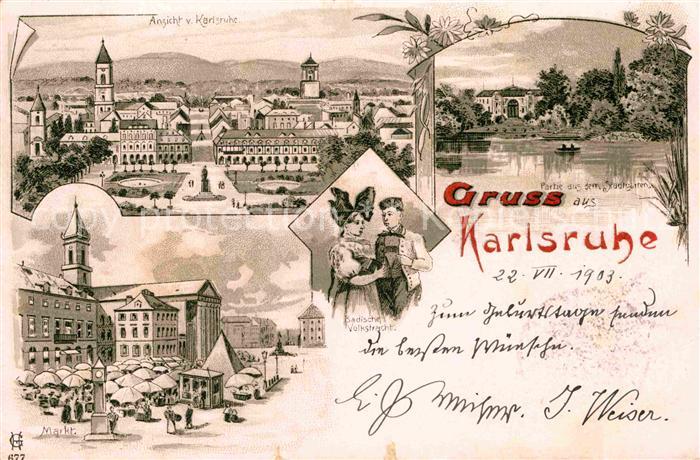 Ansicht v. Karlsruhe.
Partie aus dem Stadtgarten.
Gruss
aus
Karlsruhe
22. VII. 1903.
Badische
Volkstracht.
Zum Geburtstage senden
die besten Wünsche.
J. Weiser.
Markt.
677